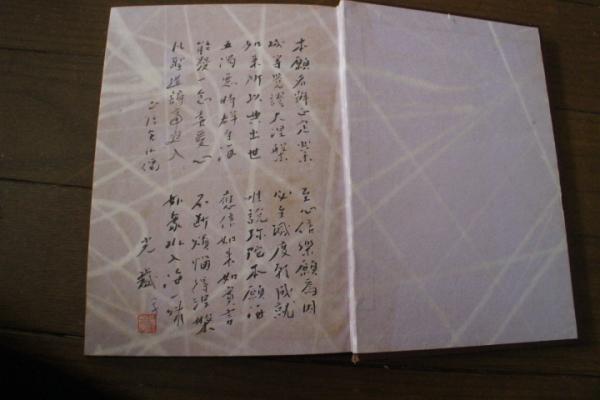 本願名号正定業 至心信樂願為因
成等覺證大涅槃 必至滅度願成就
如来所以興出世 唯説弥陀本願海
五濁悪時群生海 應信如来如實言
能發一念喜愛心 不断煩悩得涅槃
凡聖逆謗斉廻入 如衆水入海一味
正信念仏偈
光